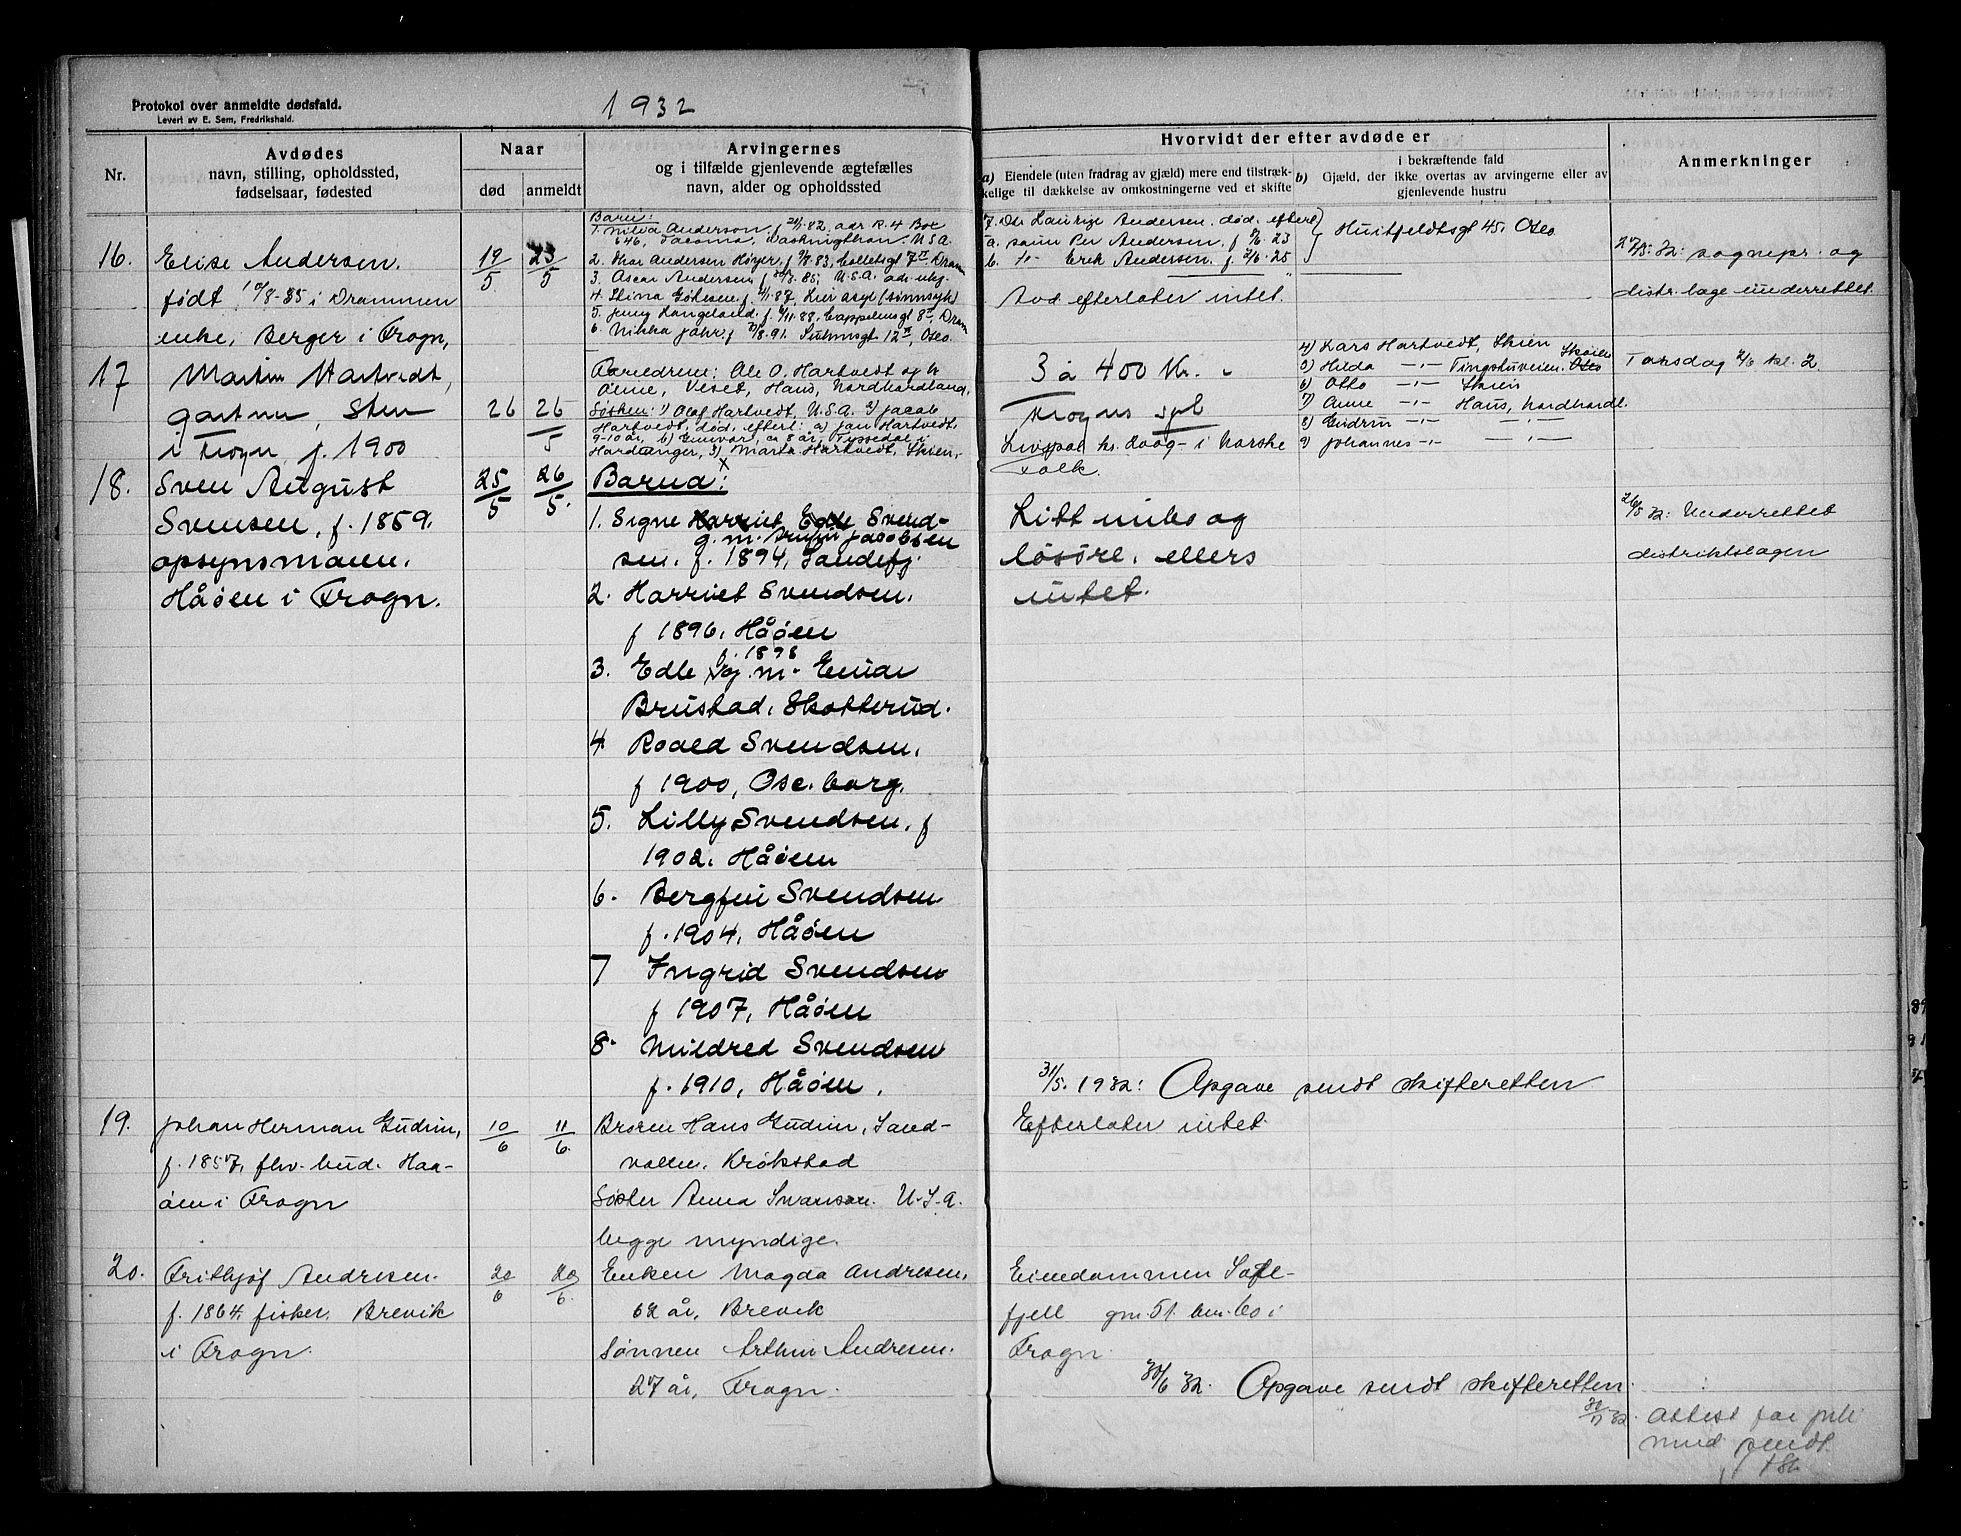 Protokol over anmeldte dødsfald.
Levert av E. Sem, Fredrikshald.
1932
Nr.
Avdødes
navn, stilling, opholdssted,
fødselsaar, fødested
Naar
død
anmeldt
Arvingernes
og i tilfælde gjenlevende ægtefælles
navn, alder og opholdssted
Hvorvidt der efter avdøde er
a) Eiendele (uten fradrag av gjæld) mere end tilstræk-
kelige til dækkelse av omkostningerne ved et skifte
i bekræftende fald
b) Gjæld, der ikke overtas av arvingerne eller av
gjenlevende hustru
Anmerkninger
16. Elise Andersen.
født 10/8-55 i Drammen
enke, Berger i Frogn,
19/5
23/5
Barn:
1. Anderson, f 21/1.82, adr R.4 Box
646, Tacoma, Washingthon, U.S.A.
2. Thor Andersen Høyer, f 7/7.83, Colletsgt 7II Dram
3. Oscar Andersen, f 85, U.S.A. adr. ukj.
4. Stina f. 4/1.87, Lier asyl (sinnsyk)
5. Jenny Langeland f. 4/11.88. Cappelensgt 8II, Dram
6. Jahr, f 8.91. 12II, Oslo.
7. Lauritz Andersen. død. efterl
a. sønn Per Andersen, f 9/6.23
b. do- Erik Andersen. f. 2/6.25
Huitfeldtsgt 45. Oslo
Avd. efterlater intet.
27/5.32: sognepr. og
distr. lage underrettet.
17 Martin Hartvedt,
gartner, Sten
i Frogn, f. 1900
26
26/5
Foreldrene: Ole O. Hartvedt og h
Anne, Veset, Haus, Nordhordland,
Søsken: 1) Olaf Hartvedt, U.S.A. 2) Jacob
Hartvedt, død, efterl: a) Jan Hartvedt,
9-10 år, b) Einvor, ca 8 år, Tyssedal i
Hardanger, 3) Marta Hartvedt, Skien,
3 à 400 Kr.
Frogns spb
Livspol. hr. Hvog- i Norske
Folk.
4) Lars Hartvedt, Skien
5) Hilda -"- Tingstuveien. Oslo
6) Otto -"- Skien
7) Anne -"- Haus, Nordhordl.
8) Gudrun -"- -"-
9) Johannes -"- -"-
Torsdag 2/6 kl. 2
18. Sven August
Svensen, f. 1859.
opsynsmann.
Håøen i Frogn.
25/5
26/5.
Barna:
1. Signe Harriet Edle Svend-
g. m. Jacobsen
sen. f. 1894, Sandefj.
2. Harriet Svendsen.
f 1896, Håøen
f. 1898
3. Edle g. m. Einar
Brustad, Skotterud.
4 Roald Svendsen,
f 1900, Oseborg.
5. Lilly Svendsen, f
1902, Håøen
6. Bergfin Svendsen
f. 1904, Håøen
7 Ingrid Svendsen
f 1907, Håøen
8. Mildred Svendsen
f. 1910, Håøen.
Litt innbo og
løsøre. ellers
intet.
26/5 32: Underrettet
distriktslagen
31/5. 1932: Opgave sendt skifteretten
19. Johan Herman Gudim,
f. 1857, fhv. bud. Haa-
øen i Frogn
10/6
11/6.
Broren Hans Gudim, Sand-
vollen. Kråkstad
Søster Anna Swanson. U.S.A.
begge myndige.
Efterlater intet.
20. Frithjof Andresen.
f. 1864. fisker. Brevik
i Frogn.
20/6
29/6.
Enken Magda Andresen,
62 år, Brevik
Sønnen Arthur Andresen.
27 år, Frogn.
Eiendommen
fjell gnr. 51. bnr. 60 i
Frogn.
30/6 32. Opgave sendt skifteretten.
30/7 32. Attest
sendt